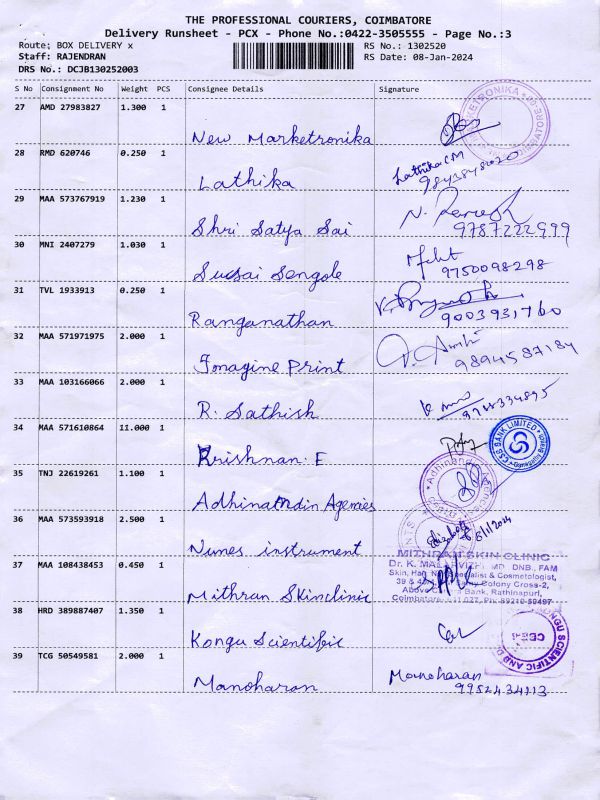 THE PROFESSIONAL COURIERS, COIMBATORE
Delivery Runsheet - PCX - Phone No.:0422-3505555 - Page No.:3
Route: BOX DELIVERY x
RS No.: 1302520
Staff: RAJENDRAN
RS Date: 08-Jan-2024
DRS No.: DCJB130252003
S No Consignment No Weight PCS Consignee Details Signature
27 AMD 27983827 1.300 1
New Marketronika
28 RMD 620746 0.250 1
Lathika
Lathika CM
9843848020
29 MAA 573767919 1.230 1
Shri Satya Sai
9787222999
30 MNI 2407279 1.030 1
Susai Sengole
9750098298
31 TVL 1933913 0.250 1
Ranganathan
9003931760
32 MAA 571971975 2.000 1
Imagine Print
9894587184
33 MAA 103166066 2.000 1
R. Sathish
34 MAA 571610864 11.000 1
Krishnan. E
CSB BANK LIMITED
35 TNJ 22619261 1.100 1
Adhinandin Agencies
36 MAA 573593918 2.500 1
Nunes instrument
37 MAA 108438453 0.450 1
Mithran Skinclinic
MITHRAN SKIN CLINIC
Dr. K. MD., DNB., FAM
Skin, Hair & Cosmetologist,
39 & Colony Cross-2,
Above Bank, Rathinapuri,
Coimbatore
38 HRD 389887407 1.350 1
Kongu Scientific
39 TCG 50549581 2.000 1
Manoharan
Manoharan
9952434113